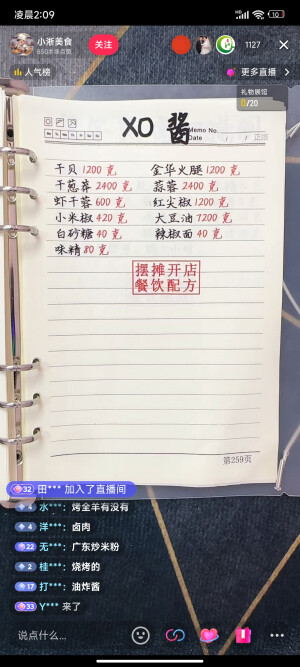 凌晨2:09
10
小淅美食
650本场点赞
关注
1127
人气榜
更多直播 >
礼物展馆
0/20
XO 酱
Memo No.
Date / /
干贝 1200 克 金华火腿 1200 克
干葱蓉 2400 克 蒜蓉 2400 克
虾干蓉 600 克 红尖椒 1200 克
小米椒 420 克 大豆油 7200 克
白砂糖 40 克 辣椒面 40 克
味精 80 克
摆摊开店
餐饮配方
第259页
32 田*** 加入了直播间
4 水***: 烤全羊有没有
4 洋***: 卤肉
22 无***: 广东炒米粉
2 桂***: 烧烤的
17 打***: 油炸酱
33 Y*** 来了
说点什么...